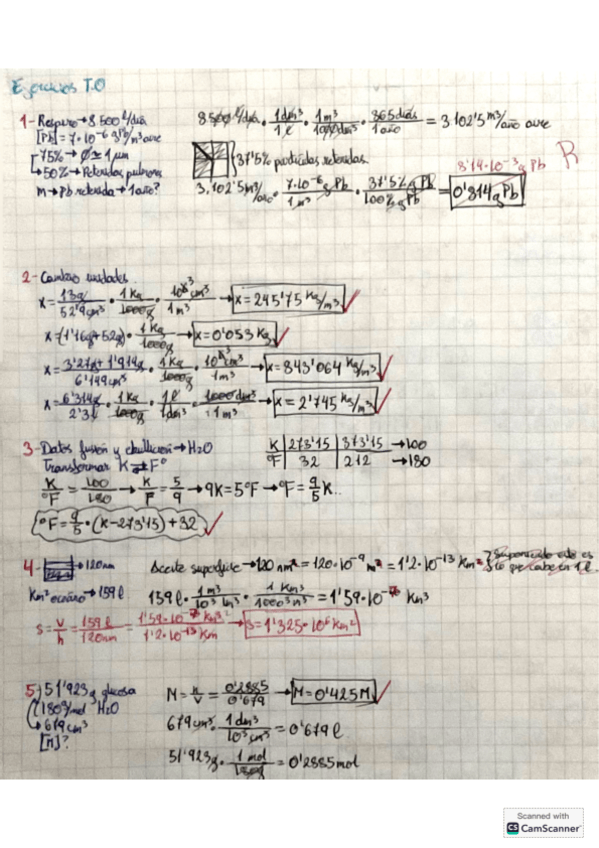 Ejercicios T.0
1- Respiro → 8 500 l/día
[Pb] = 7·10⁻⁶ g Pb/m³ aire
75% → Ø ≃ 1 μm
↳ 50% → Retenidas pulmones
m → Pb retenida → 1 año?
8 500 l/día · 1 dm³/1 l · 1 m³/1000 dm³ · 365 días/1 año = 3 102'5 m³/año aire
37'5% partículas retenidas.
8'14·10⁻³ g Pb R
3.102'5 m³/año · 7·10⁻⁶ g Pb/1 m³ · 37'5 g Pb/100 g Pb = 0'814 g Pb
2- Cambio unidades
x = 13g/52'9cm³ · 1 Kg/1000g · 10⁶ cm³/1 m³ → x = 245'75 Kg/m³
x = (1'16g + 52g) · 1 Kg/1000g → x = 0'053 Kg
x = 3'27g + 1'914g/6'149cm³ · 1 Kg/1000g · 10⁶ cm³/1 m³ → x = 843'064 Kg/m³
x = 6'314g/2'3l · 1 Kg/1000g · 1 l/1 dm³ · 1000 dm³/1 m³ → x = 2'745 Kg/m³
3- Datos fusión y ebullición → H₂O
Transformar K ⇄ Fº
K | 273'15 | 373'15 → 100
ºF | 32 | 212 → 180
K/ºF = 100/180 → K/F = 5/9 → 9K = 5ºF → ºF = 9/5 K...
ºF = 9/5 · (K - 273'15) + 32
4- → 120nm
Km² océano → 159 l
Aceite superficie → 120 nm² = 120·10⁻⁹ m² = 1'2·10⁻¹³ Km² Suponiendo esto es lo que cabe en 1 l.
159 l · 1 m³/10³ dm³ · 1 Km³/1000³ m³ = 1'59·10⁻¹⁰ Km³
s = V/h = 159 l/120nm = 1'59·10⁻¹⁰ Km³/1'2·10⁻¹³ Km → s = 1'325·10⁶ Km²
5- 51'923 g glucosa
(180g/mol H₂O
→ 679 cm³
[M]?
M = n/V = 0'2885/0'679 → M = 0'425 M
679 cm³ · 1 dm³/10³ cm³ = 0'679 l
51'923g · 1 mol/180g = 0'2885 mol
Scanned with
CS CamScanner